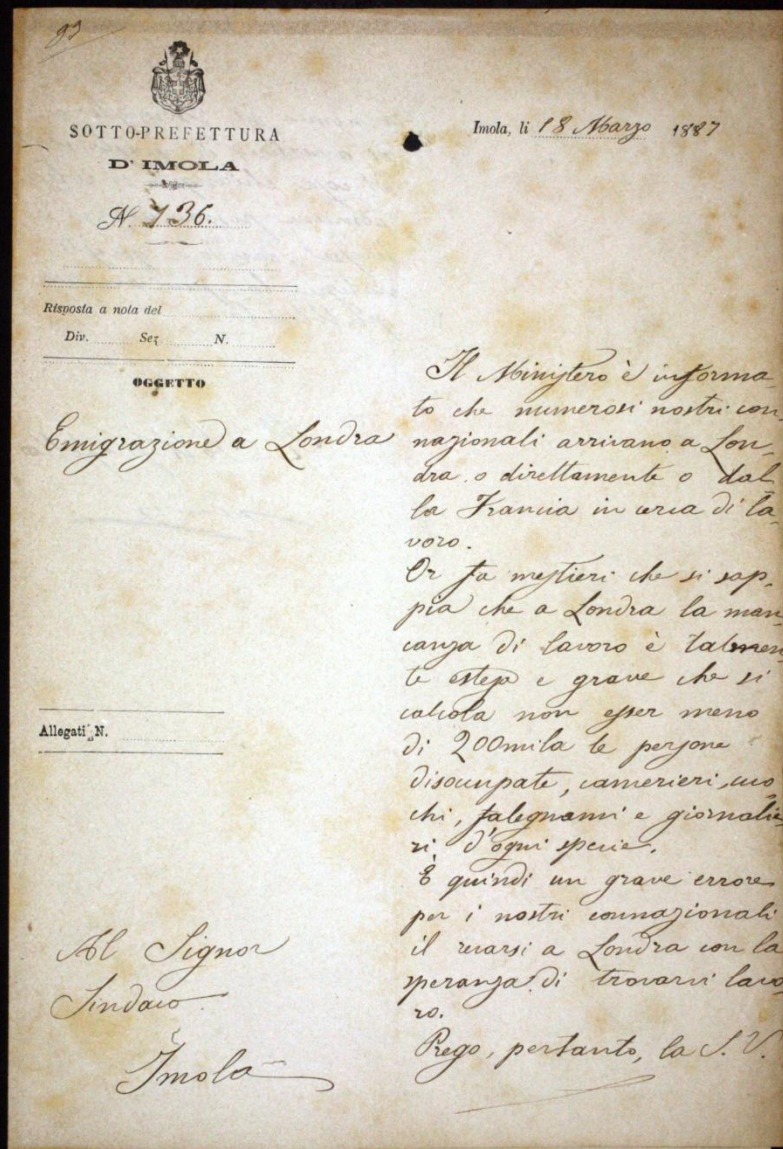 93
SOTTO-PREFETTURA
D'IMOLA
N. 736.
Imola, li 18 Marzo 1887
Risposta a nota del
Div. Sez N.
OGGETTO
Emigrazione a Londra
Allegati N.
Al Signor
Sindaco
Imola
Il Ministero è informa
to che numerosi nostri con-
nazionali arrivano a Lon-
dra o direttamente o dal
la Francia in cerca di la-
voro.
Or fa mestieri che si sap-
pia che a Londra la man-
canza di lavoro è talmen
te estesa e grave che si
calcola non esser meno
di 200mila le persone
disoccupate, camerieri, cuo
chi, falegnami e giornalie
ri d'ogni specie.
È quindi un grave errore
per i nostri connazionali
il recarsi a Londra con la
speranza di trovarvi lavo
ro.
Prego, pertanto, la S. V.